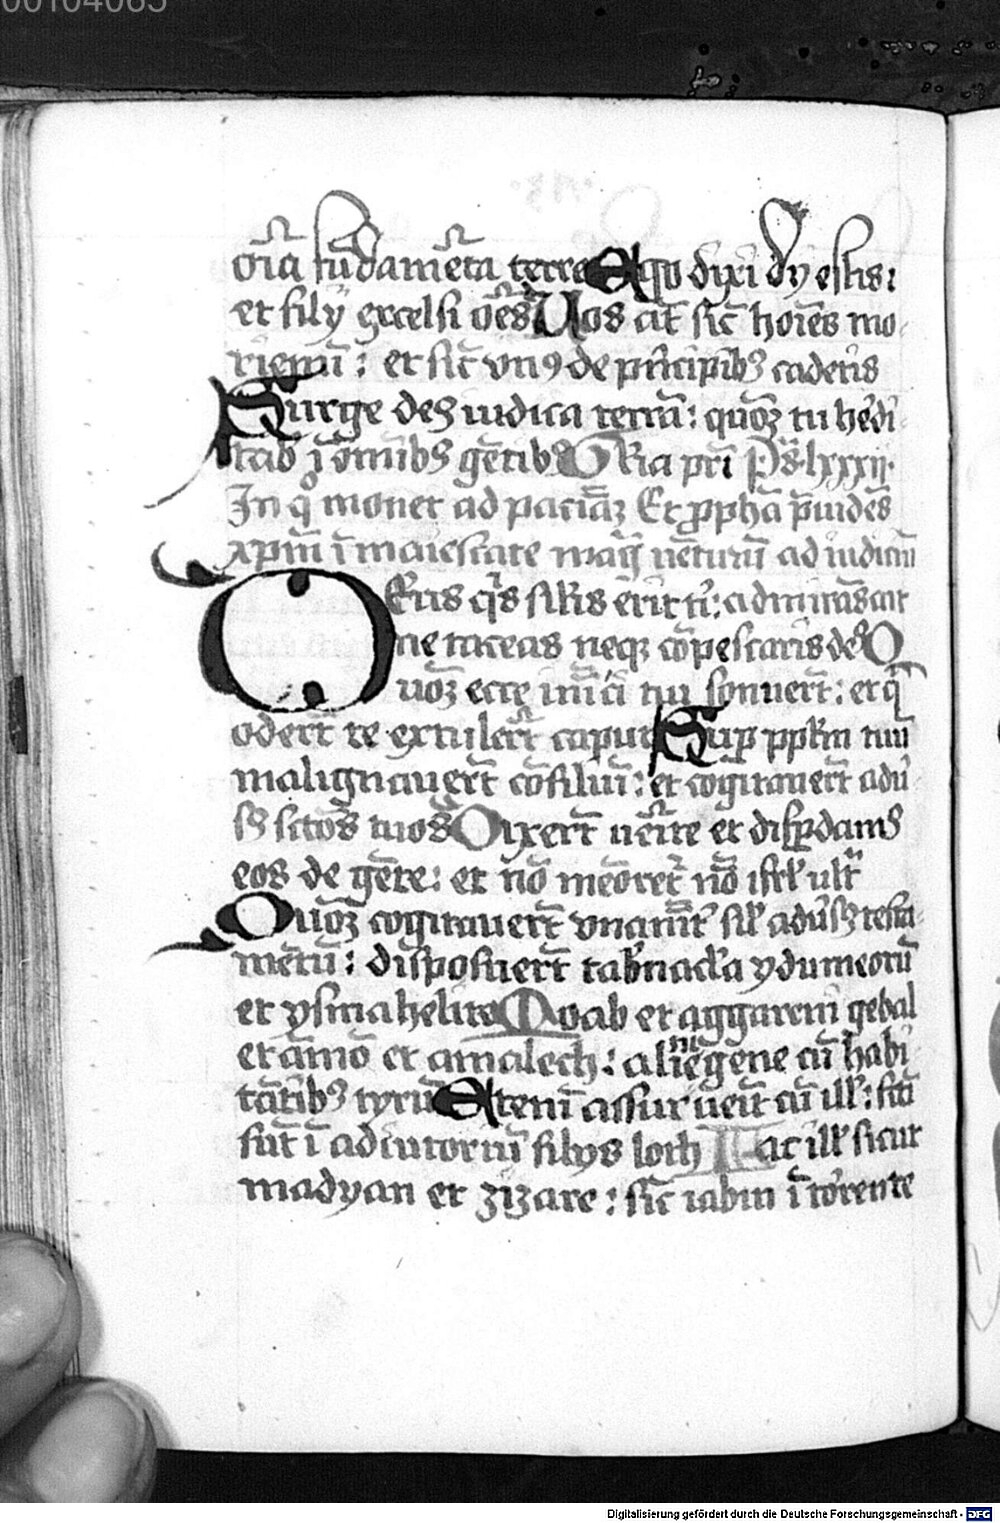 00104085
oīa fūdamēta terre Ego dixi dij estis:
et filij excelsi oēs Uos aūt sic̄ hoīes mo-
riemī: et sic̄ vnꝰ de prīcipibꝫ cadetis
Surge deꝰ iudica terrā: quōꝫ tu hēdi-
tab̄ ī om̄ibꝫ gētibꝫ Gl̄ia prī Ps̄. lxxxij.
In q̊ monet ad paciāꝫ Et ꝓphā p̄uidēs
xpm̄ ī maiestate maḡ uēturū ad iudiciū
Deus qͥs sil̄is erit tͥ:
ne taceas neqꝫ cōpescaris deꝰ Q
uōꝫ ecce inīci tui sonuerūt: et qͥ
oderūt te extulerūt caput Suꝑ ppl̄m tuū
malignauerūt cōsiliū: et cogitauerūt adū-
sꝫ sctōs tuos Dixerūt uēīte et disꝑdamꝰ
eos de gēte: et nō memoret̄ nō isrl̄ ult̄
Quōꝫ cogitauerūt vnaniī sil̄ adūsꝫ testa-
mētū: disposuerūt tab̄nacl̄a ydumeorū
et ysmahelite Moab et aggareni gebal
et āmō et amalech: aliēgene cū habi-
tātibꝫ tyrū Etenī assur uēit cū ill̄:
fc̄ti sūt ī adiutoriū filijs loth Fac ill̄ sicut
madyan et zizare: sic̄ iabin ī torrente
Digitalisierung gefördert durch die Deutsche Forschungsgemeinschaft - DFG